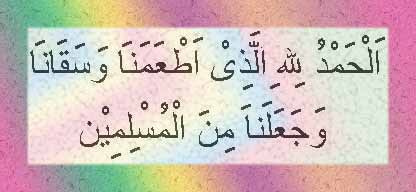 اَلْحَمْدُ لِلّٰهِ الَّذِىْ اَطْعَمَنَا وَسَقَانَا
وَجَعَلَنَا مِنَ الْمُسْلِمِيْن